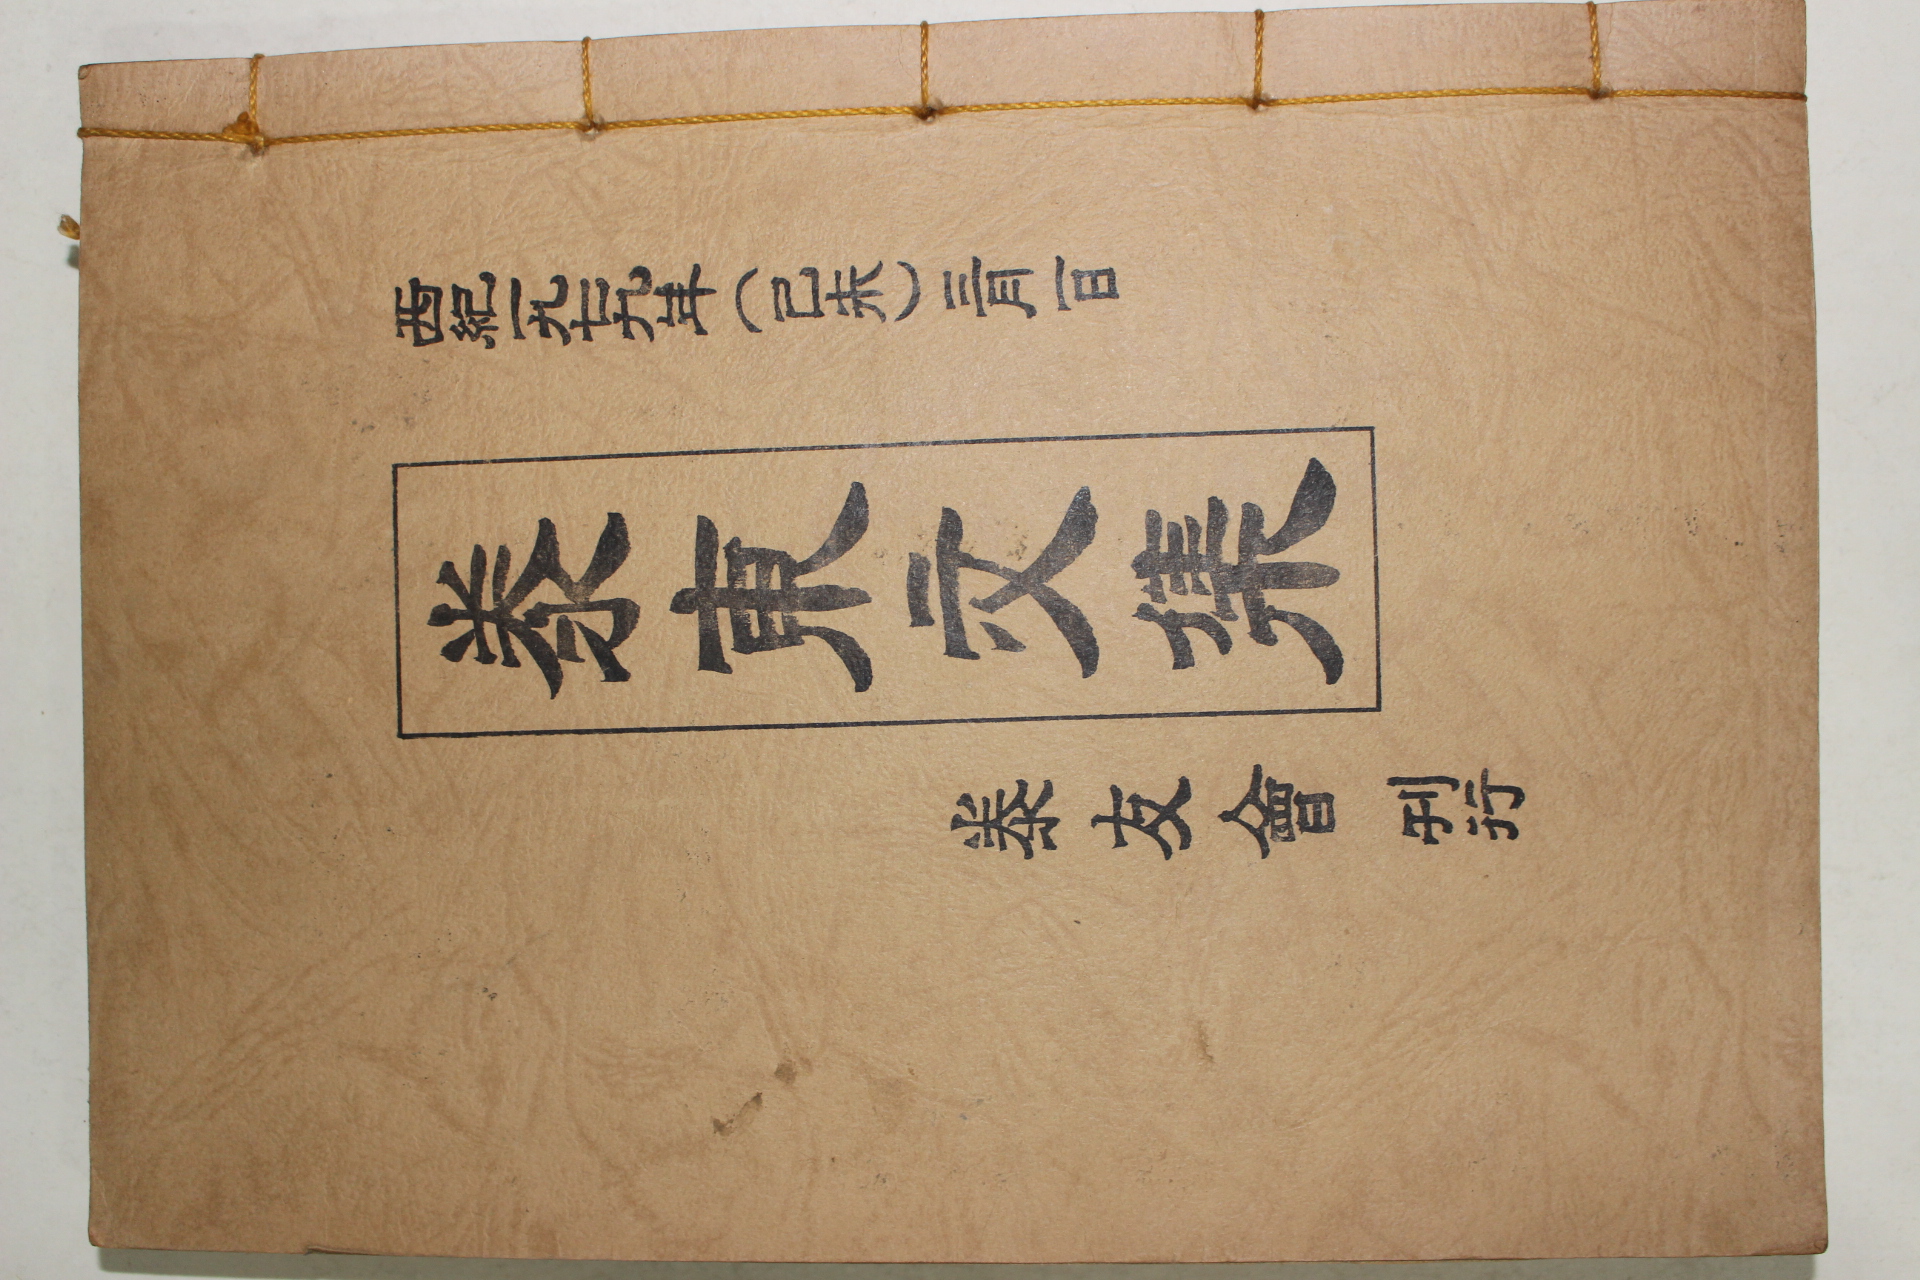 西紀一九七九年(己未)三月一日
泰東文集
泰友會 刊行